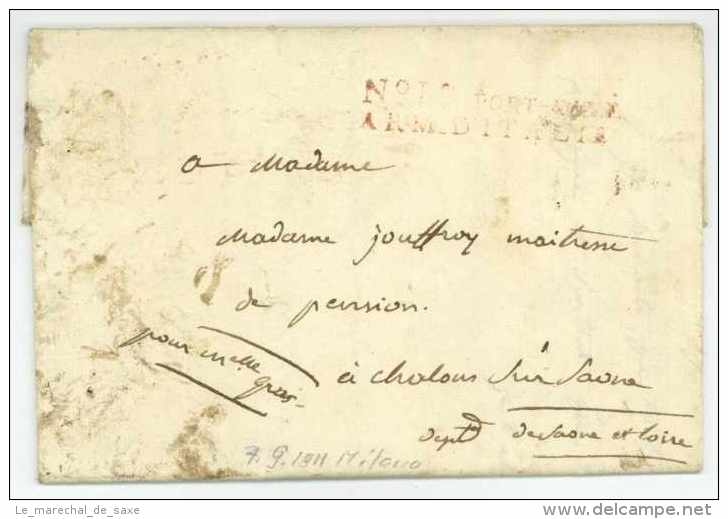 No 1o PORT-PAYÉ
ARM. D'ITALIE
a Madame
Madame jouffroy maitresse
de pension.
pour melle
gras
à chalons Sur Saone
deptd de Saone et loire
7.9.1811 Milano
Le_marechal_de_saxe
delcampe.net